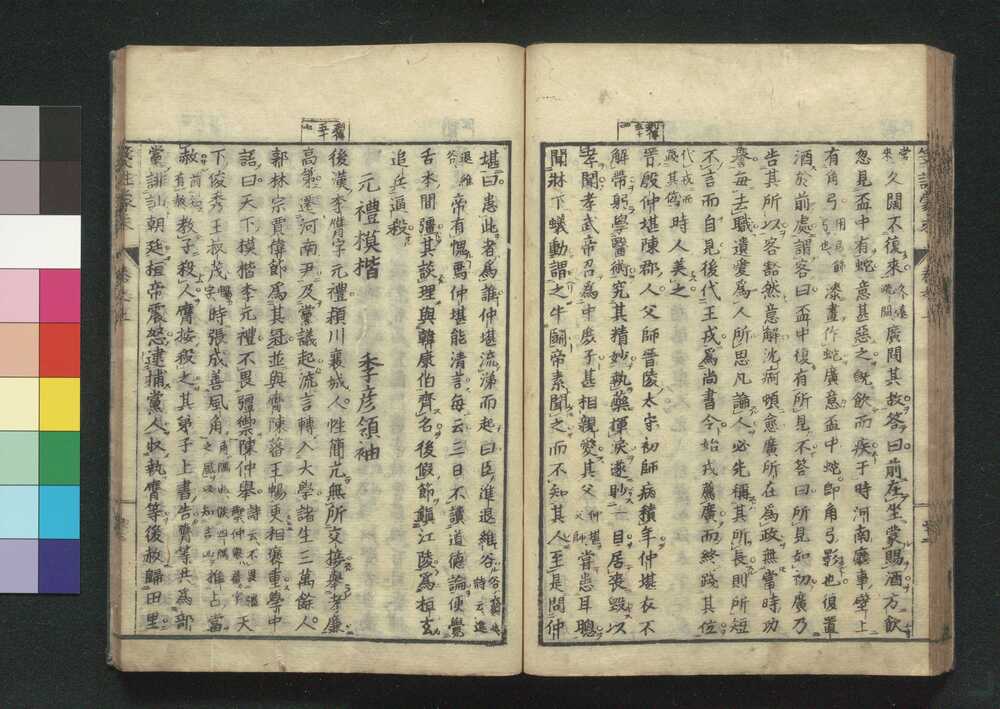 久闊不復來廣問其故答曰前在坐蒙賜酒方飲
忽見盃中有蛇意甚惡之既飲而疾于時河南廳事壁上
有角弓漆畫作蛇廣意盃中蛇即角弓影也復置
酒於前處謂客曰盃中復有所見不答曰所見如初廣乃
告其所以客豁然意解沈痾頓愈廣所在爲政無當時功
譽每去職遺愛爲人所思凡論人必先稱其所長則所短
不言而自見後代王戎爲尚書令始戎薦廣而終踐其位
時人美之
晉殷仲堪陳郡人父師晉陵太守初師病積年仲堪衣不
解帶躬學醫術究其精妙執藥揮淚遂眇一目居喪毀以
孝聞孝武帝召爲中庶子甚相親愛其父嘗患耳聰
聞牀下蟻動謂之牛鬪帝素聞之而不知其人至是問仲
堪曰患此者爲誰仲堪流涕而起曰臣進退維谷
帝有愧焉仲堪能清言每云三日不讀道德論便覺
舌本間彊其談理與韓康伯齊名後假節鎭江陵爲桓玄
追兵逼殺
元禮模楷 季彦領袖
後漢李膺字元禮潁川襄城人性簡亢無所交接舉孝廉
高第遷河南尹及黨議起流言轉入大學諸生三萬餘人
郭林宗賈偉節爲其冠並與膺陳蕃王暢更相褒重學中
語曰天下模楷李元禮不畏彊禦陳仲舉天
下俊秀王叔茂時張成善風角推占當
赦教子殺人膺按殺之其弟子上書告膺等共爲部
黨誹訕朝廷桓帝震怒逮捕黨人收執膺等後赦歸田里